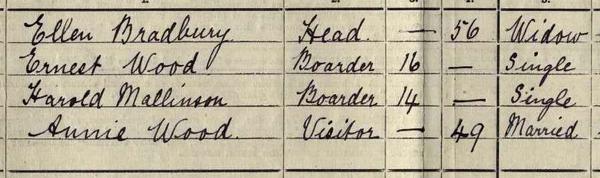 Ellen Bradbury Head. — 56 Widow
Ernest Wood Boarder 16 — Single
Harold Mallinson Boarder 14 — Single
Annie Wood. Visitor — 49 Married